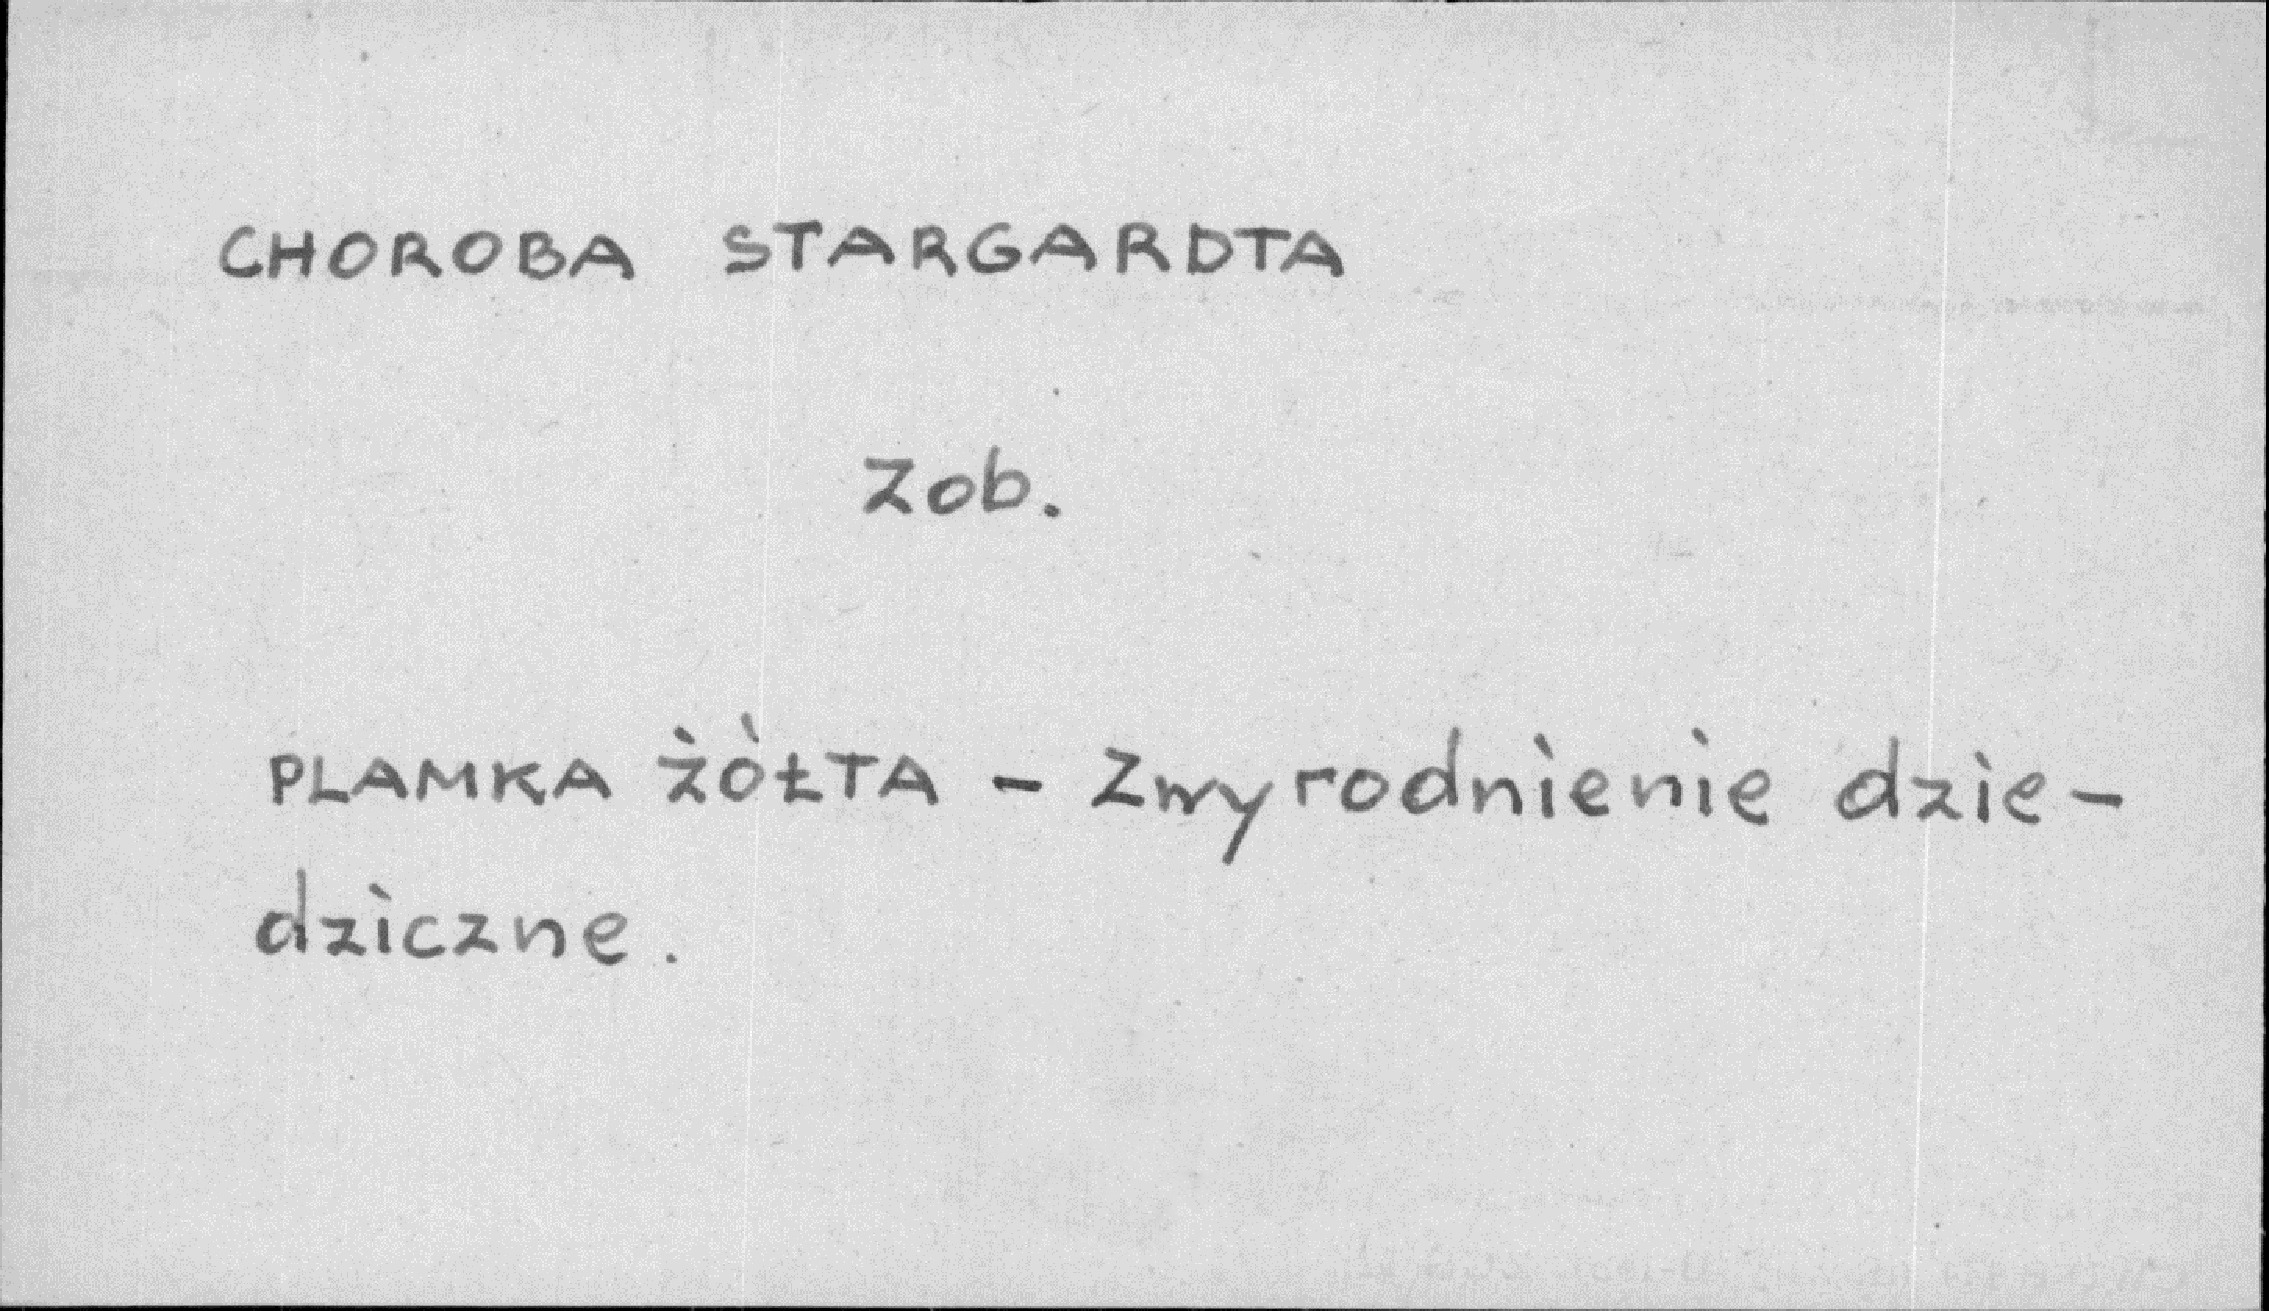 CHOROBA STARGARDTA
Zob.
PLAMKA ŻÓŁTA - Zwyrodnienie dzie-
dziczne.